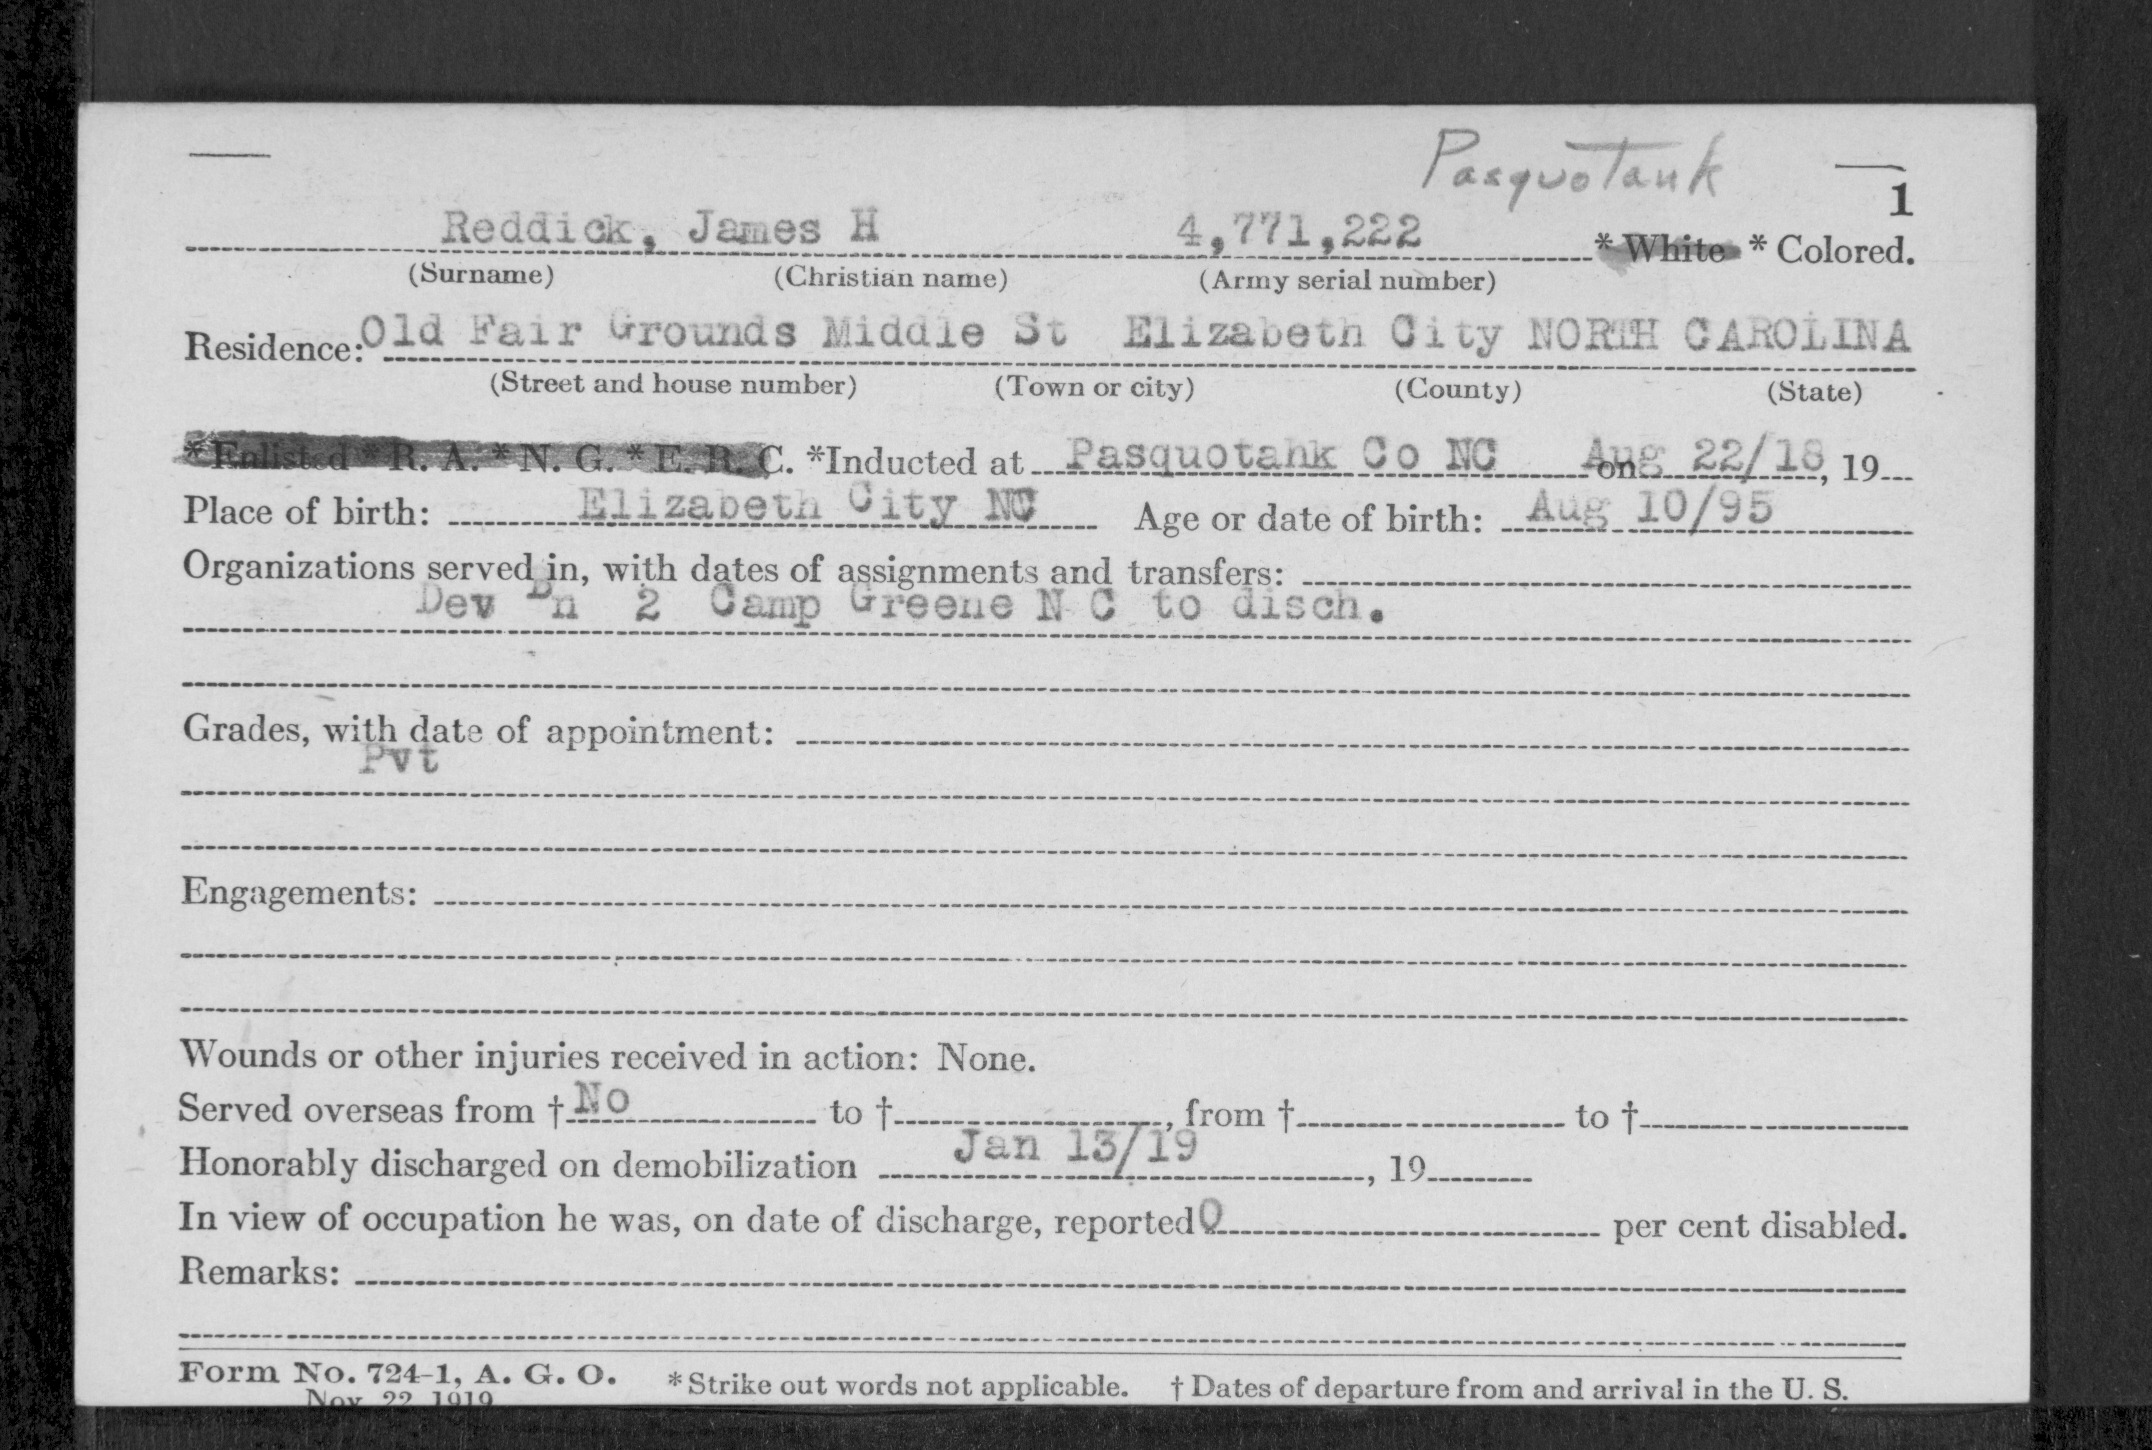 Pasquotank
1
Reddick, James H 4,771,222 * White * Colored.
(Surname) (Christian name) (Army serial number)
Residence: Old Fair Grounds Middle St Elizabeth City NORTH CAROLINA
(Street and house number) (Town or city) (County) (State)
*Enlisted *R. A. *N. G. *E. R. C. *Inducted at Pasquotahk Co NC on Aug 22/18, 19
Place of birth: Elizabeth City NC Age or date of birth: Aug 10/95
Organizations served in, with dates of assignments and transfers:
Dev Bn 2 Camp Greene N C to disch.
Grades, with date of appointment:
Pvt
Engagements:
Wounds or other injuries received in action: None.
Served overseas from † No to †, from † to †
Honorably discharged on demobilization Jan 13/19, 19
In view of occupation he was, on date of discharge, reported 0 per cent disabled.
Remarks:
Form No. 724-1, A. G. O. * Strike out words not applicable. † Dates of departure from and arrival in the U. S.
Nov. 22 1919